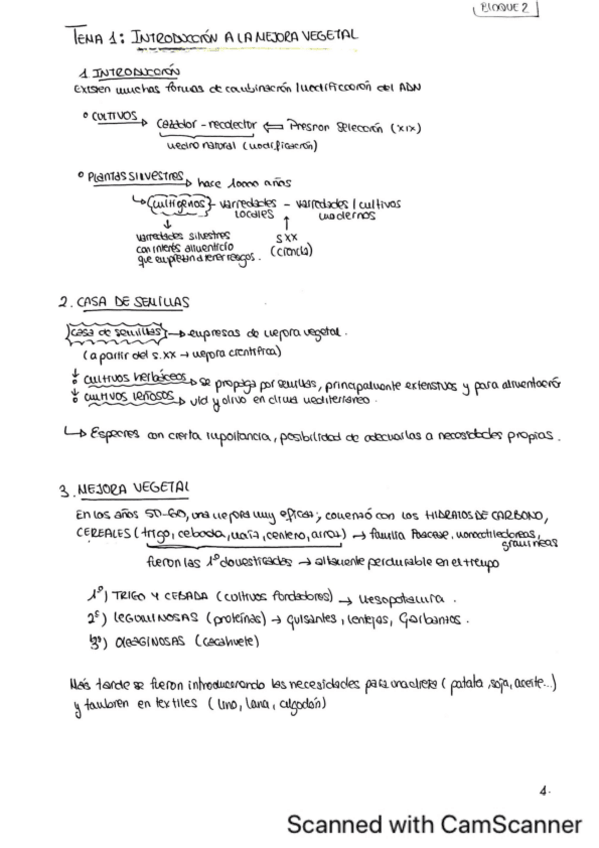 BLOQUE 2
TEMA 1: INTRODUCCIÓN A LA MEJORA VEGETAL
1 INTRODUCCIÓN
Existen muchas formas de combinación / modificación del ADN
° CULTIVOS → cazador - recolector ⇐ Presión selección (XIX)
medio natural (modificación)
° Plantas silvestres → hace 10000 años
↳ (cultígenos) - variedades locales - variedades / cultivos modernos
variedades silvestres con interés alimenticio que empiezan a tener rasgos.
S XX (ciencia)
2. CASA DE SEMILLAS
casa de semillas → empresas de mejora vegetal.
(a partir del s.XX → mejora científica)
cultivos herbáceos → se propaga por semillas, principalmente extensivos y para alimentación
cultivos leñosos → vid y olivo en clima mediterráneo.
↳ Especies con cierta importancia, posibilidad de adecuarlas a necesidades propias.
3. MEJORA VEGETAL
En los años 50-60, una mejora muy eficaz; comenzó con los HIDRATOS DE CARBONO,
CEREALES (trigo, cebada, maíz, centeno, arroz) → familia Poaceae, monocotiledóneas, gramíneas
fueron las 1º domesticadas → alimento perdurable en el tiempo
1º) TRIGO Y CEBADA (cultivos fundadores) → Mesopotamia.
2º) LEGUMINOSAS (proteínas) → guisantes, lentejas, Garbanzos.
3º) OLEAGINOSAS (cacahuete)
Más tarde se fueron introduciendo las necesidades para una dieta (patata, soja, aceite...)
y también en textiles (lino, lana, algodón)
4.
Scanned with CamScanner